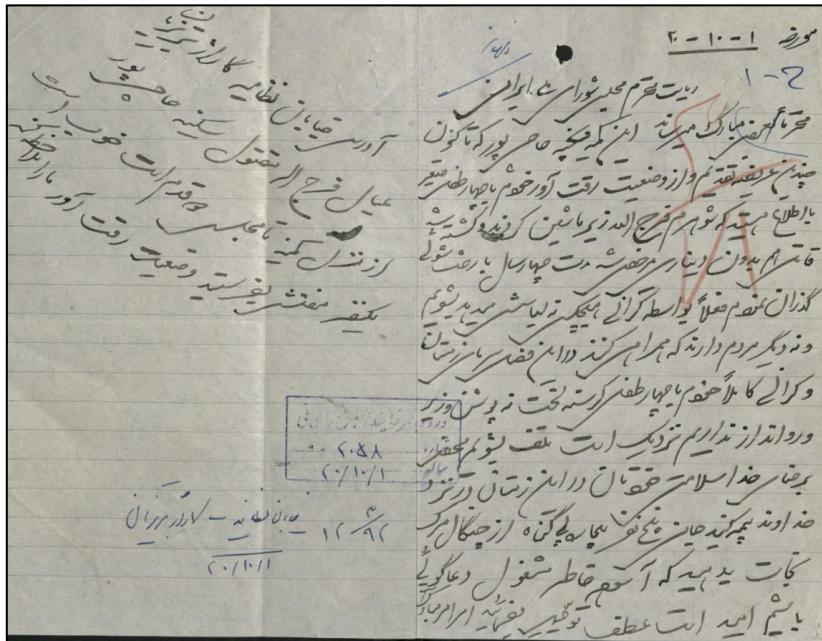 مورخه ۱-۱۰-۲۰
ریاست محترم مجلس شورای ملی ایران
محترماً بعرض مبارک میرساند این کمینه حاجی پور که تاکنون
چندین عریضه تقدیم و از وضعیت رقت آور خودم با چهار طفل صغیر
با اطلاع هستید که شوهرم فرج الله زیر ماشین کردند و کشته شد
قاتل هم بدون دیناری مرخص شد مدت چهار سال با رخت شوئی
گذران نمودم فعلاً بواسطه گرانی هیچکس نه لباسش میدهد بشویم
و نه دیگر مردم دارند که همراهی کنند در این فصل سرما زمستان
و گرانی کاملاً خودم با چهار طفل گرسنه لخت نه پوشش و زیر
و روانداز نداریم نزدیک است تلف بشویم محض
رضای خدا سلامتی خودتان در این زمستان در نزد
خداوند جان پنج نفر بیچاره بی گناه از چنگال مرگ
نجات بدهید که آسوده خاطر مشغول دعاگوئی
باشیم امید است عطف توجهی بفرمائید امر امر مبارک
آدرس خیابان نظامیه گاراژ برزیان
عیال فرج الله مقتول سکینه حاجی پور
از منزل کمینه تا مجلس قدم است خوب است
یکنفر مفتش بفرستید وضعیت رقت آور ما را ملاحظه
۲۰۵۸
۲۰/۱۰/۱
خیابان نظامیه - گاراژ برزیان
۲۰/۱۰/۱